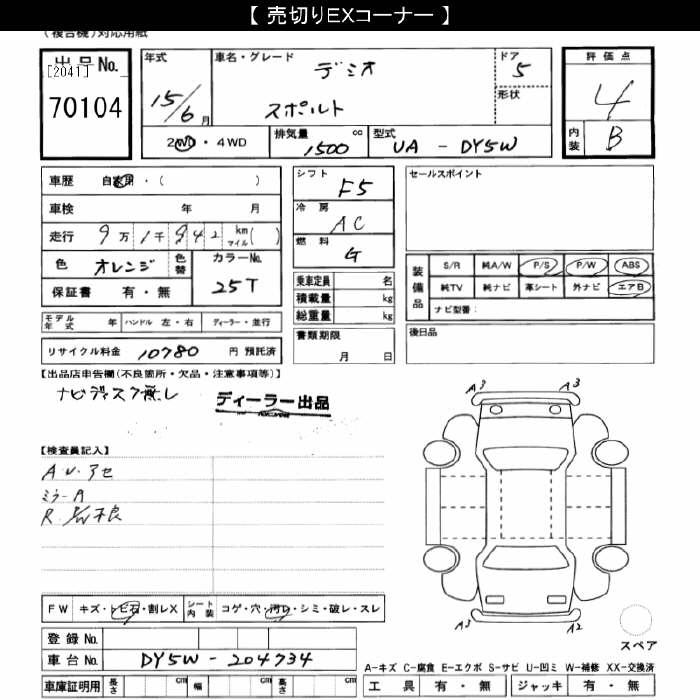 【 売切りEXコーナー 】
(複合機)対応用紙
出品No.
[2041]
70104
年式
15/6月
車名・グレード
デミオ
スポルト
ドア
5
形状
評価点
4
内装 B
2WD・4WD
排気量 1500 cc
型式 UA - DY5W
車歴 自家用・( )
車検 年 月
走行 9万1千942 km マイル( )
色 オレンジ 色替 カラーNo. 25T
保証書 有・無
モデル年式 年 ハンドル 左・右 ディーラー・並行
リサイクル料金 10780 円 預託済
シフト F5
冷房 AC
燃料 G
乗車定員 名
積載量 kg
総重量 kg
書類期限
月 日
セールスポイント
装備品
S/R 純A/W P/S P/W ABS
純TV 純ナビ 革シート 外ナビ エアB
ナビ型番:
後日品
【出品店申告欄(不良箇所・欠品・注意事項等)】
ナビディスク無し
ディーラー出品
【検査員記入】
A・U・アセ
ミラーA
A3 A3
A3 A2
スペア
FW キズ・トビ石・割レX シート内装 コゲ・穴・汚レ・シミ・破レ・スレ
登録No.
車台No. DY5W-204734
車庫証明用 長さ cm 幅 cm 高さ cm
A-キズ C-腐食 E-エクボ S-サビ U-凹ミ W-補修 XX-交換済
工具 有・無 ジャッキ 有・無